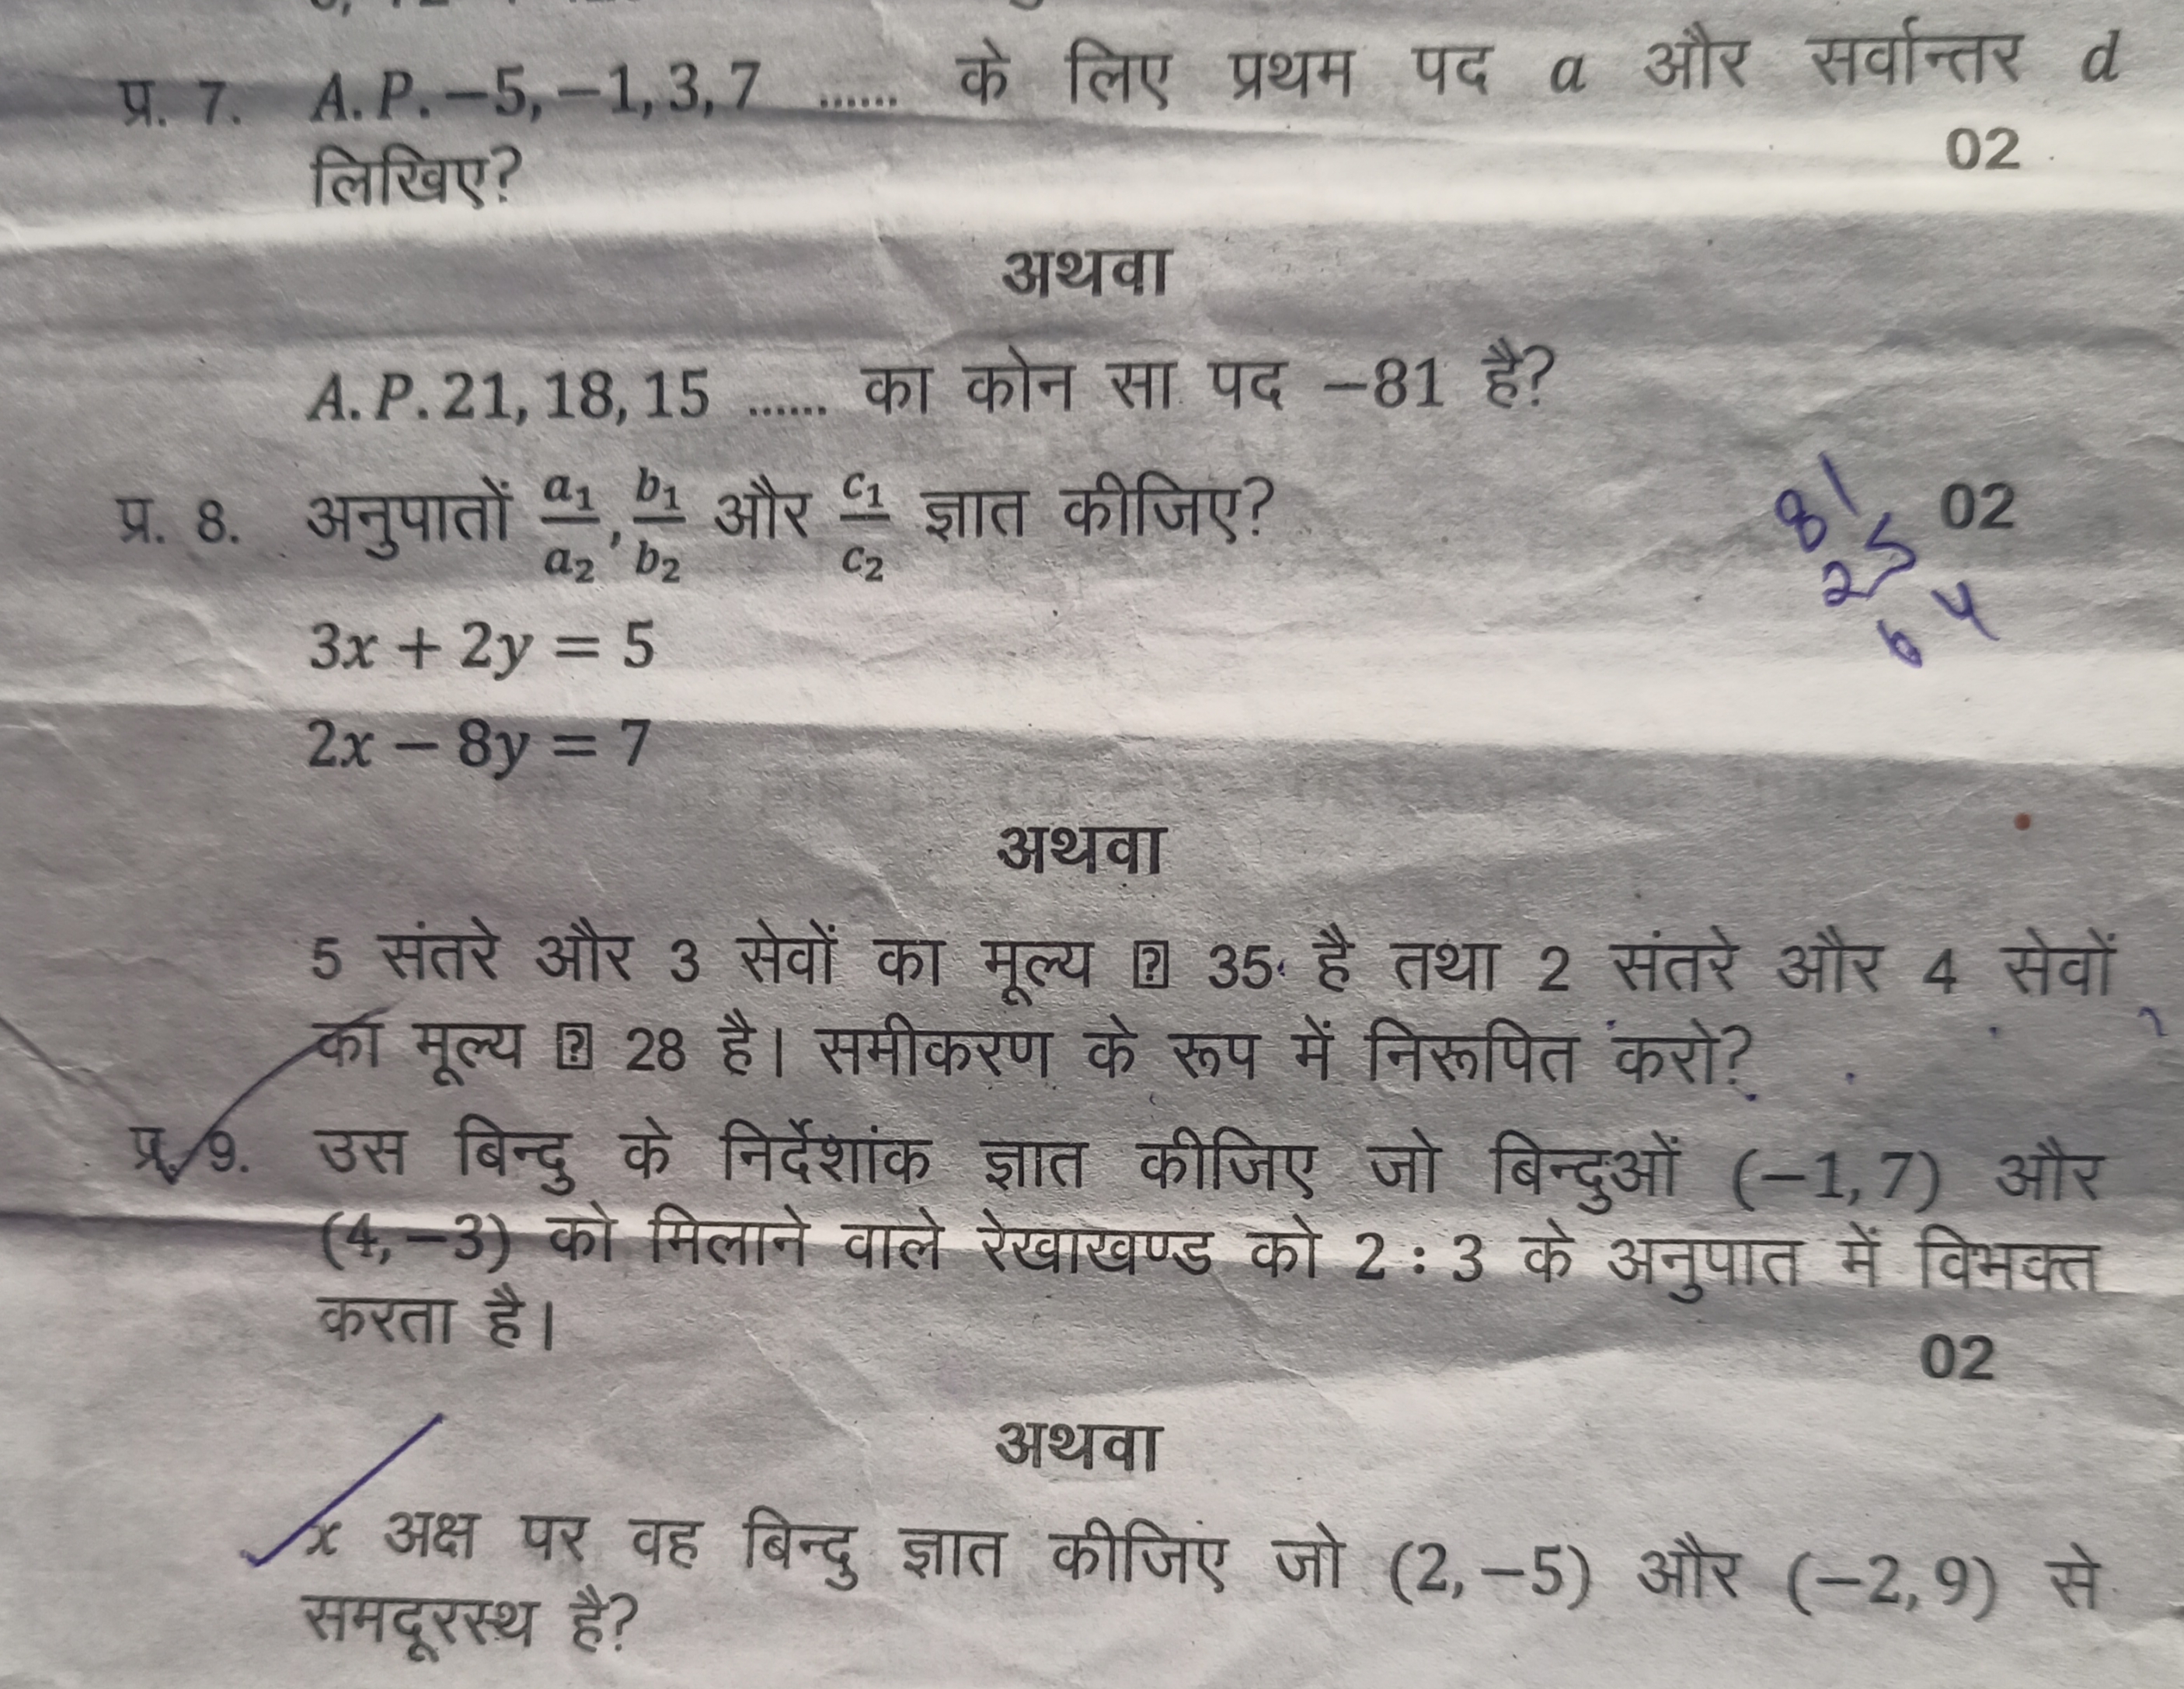 प्र. 7. A.P. −5, −1, 3, 7 ...... के लिए प्रथम पद a और सर्वान्तर d
लिखिए? 02
अथवा
A.P. 21, 18, 15 ...... का कोन सा पद −81 है?
प्र. 8. अनुपातों a₁/a₂, b₁/b₂ और c₁/c₂ ज्ञात कीजिए? 02
81
25
64
3x + 2y = 5
2x − 8y = 7
अथवा
5 संतरे और 3 सेवों का मूल्य ⍰ 35 है तथा 2 संतरे और 4 सेवों
का मूल्य ⍰ 28 है। समीकरण के रूप में निरूपित करो?
प्र. 9. उस बिन्दु के निर्देशांक ज्ञात कीजिए जो बिन्दुओं (−1, 7) और
(4, −3) को मिलाने वाले रेखाखण्ड को 2 : 3 के अनुपात में विभक्त
करता है।
02
अथवा
x अक्ष पर वह बिन्दु ज्ञात कीजिए जो (2, −5) और (−2, 9) से
समदूरस्थ है?